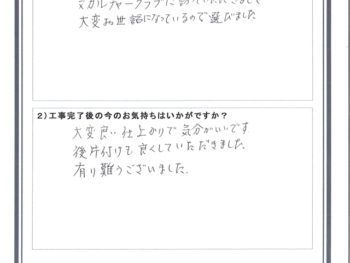 カルチャークラブに
大変お世話になっているので選びました
2)工事完了後の今のお気持ちはいかがですか?
大変良い仕上がりで気分がいいです
後片付けも良くしていただきました。
有り難うございました。